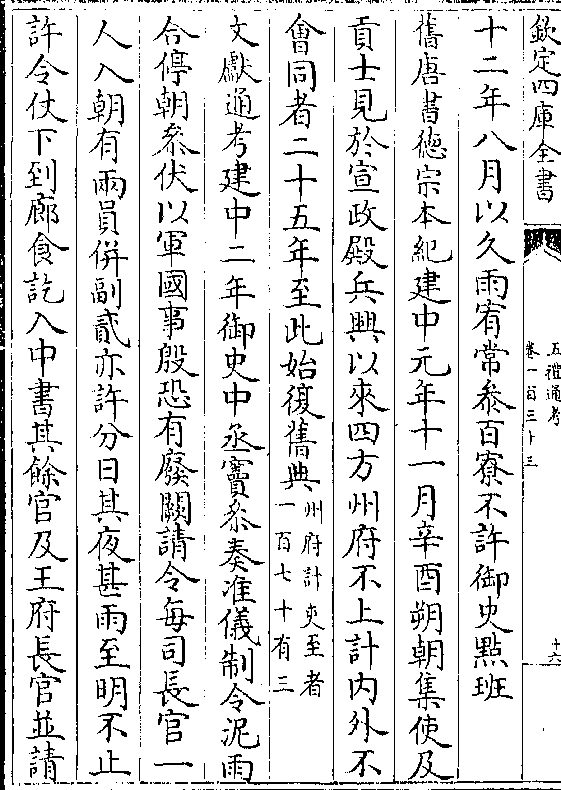 欽定四庫全書
五禮通考
卷一百三十三
十六
十二年八月以久雨宥常叅百寮不許御史㸃班
舊唐書徳宗本紀建中元年十一月辛酉朔朝集使及
貢士見於宣政殿兵興以來四方州府不上計内外不
會同者二十五年至此始復舊典州府計吏至者一百七十有三
文獻通考建中二年御史中丞竇叅奏准儀制令泥雨
合停朝叅伏以軍國事殷恐有廢闕請令每司長官一
人入朝有兩員併副貳亦許分日其夜甚雨至明不止
許令仗下到廊食訖入中書其餘官及王府長官並請